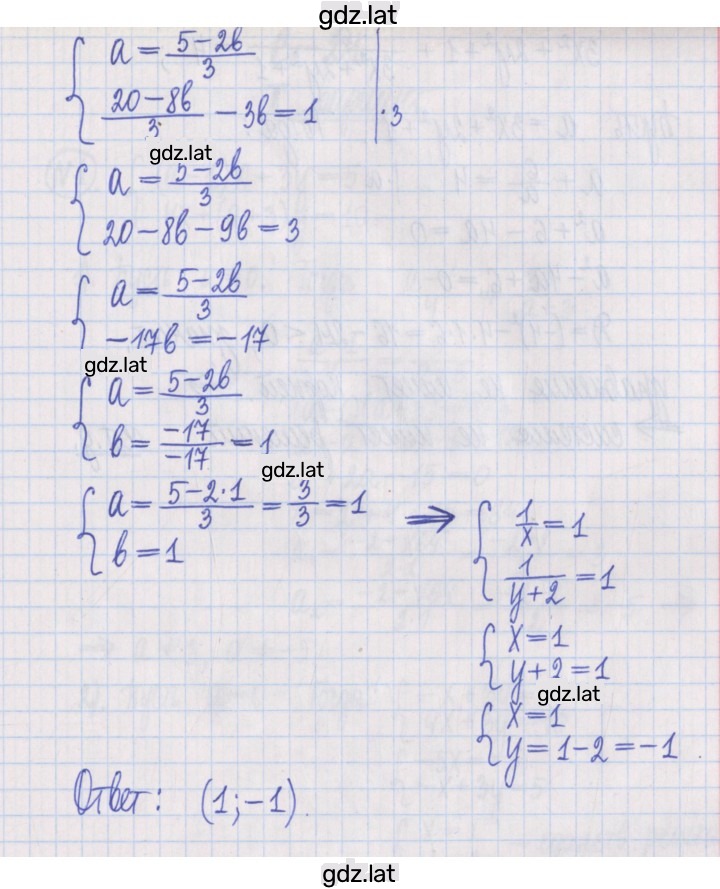 gdz.lat
{ a = (5-2b)/3
{ (20-8b)/3 - 3b = 1 | ·3
gdz.lat
{ a = (5-2b)/3
{ 20-8b-9b=3
{ a = (5-2b)/3
{ -17b=-17
gdz.lat
{ a = (5-2b)/3
{ b = -17/-17 = 1
gdz.lat
{ a = (5-2·1)/3 = 3/3 = 1
{ b=1
⇒ { 1/x = 1
{ 1/(y+2) = 1
{ x=1
{ y+2=1
gdz.lat
{ x=1
{ y=1-2=-1
Ответ: (1;-1).
gdz.lat